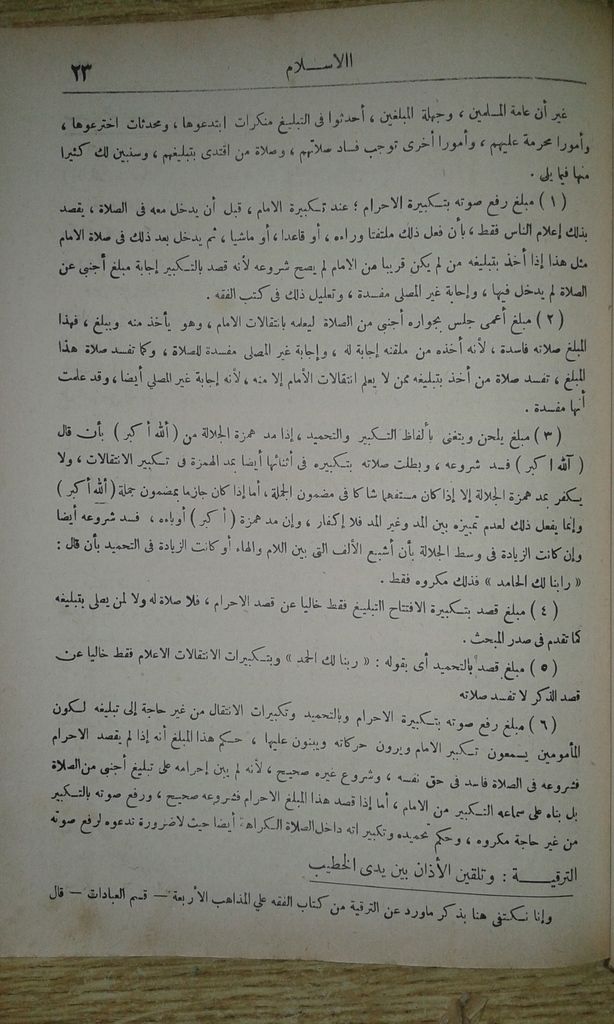 الاسلام
٢٣
غير أن عامة المسلمين ، وجهلة المبلغين ، أحدثوا فى التبليغ منكرات ابتدعوها ، ومحدثات اخترعوها ،
وأمورا محرمة عليهم ، وأمورا أخرى توجب فساد صلاتهم ، وصلاة من اقتدى بتبليغهم ، وسنبين لك كثيرا
منها فيما يلى .
( ١ ) مبلغ رفع صوته بتكبيرة الاحرام ؛ عند تكبيرة الامام ، قبل أن يدخل معه فى الصلاة ، يقصد
بذلك إعلام الناس فقط ، بأن فعل ذلك ملتفتا وراءه ، أو قاعدا ، أو ماشيا ، ثم يدخل بعد ذلك فى صلاة الامام
مثل هذا إذا أخذ بتبليغه من لم يكن قريبا من الامام لم يصح شروعه لأنه قصد بالتكبير إجابة مبلغ أجنبى عن
الصلاة لم يدخل فيها ، وإجابة غير المصلى مفسدة ، وتعليل ذلك فى كتب الفقه .
( ٢ ) مبلغ أعمى جلس بجواره أجنبى من الصلاة ليعلمه بانتقالات الامام ، وهو يأخذ منه ويبلغ ، فهذا
المبلغ صلاته فاسدة ، لأنه أخذه من ملقنه إجابة له ، وإجابة غير المصلى مفسدة للصلاة ، وكما تفسد صلاة هذا
المبلغ ، تفسد صلاة من أخذ بتبليغه ممن لا يعلم انتقالات الأمام إلا منه ، لأنه إجابة غير المصلي أيضا ، وقد علمت
أنها مفسدة .
( ٣ ) مبلغ يلحن ويتغنى بألفاظ التكبير والتحميد ، إذا مد همزة الجلالة من ( الله أكبر ) بأن قال
( آلله اكبر ) فسد شروعه ، وبطلت صلاته بتكبيره فى أثنائها أيضا بمد الهمزة فى تكبير الانتقالات ، ولا
يكفر بمد همزة الجلالة إلا إذا كان مستفهما شاكا فى مضمون الجملة ، أما إذا كان جازما بمضمون جملة ( ألله أكبر )
وإنما يفعل ذلك لعدم تمييزه بين المد وغير المد فلا إكفار ، وإن مد همزة ( أكبر ) أوباءه ، فسد شروعه أيضا
وإن كانت الزيادة فى وسط الجلالة بأن أشبع الألف التى بين اللام والهاء أو كانت الزيادة فى التحميد بأن قال :
« رابنا لك الحامد » فذلك مكروه فقط .
( ٤ ) مبلغ قصد بتكبيرة الافتتاح التبليغ فقط خاليا عن قصد الاحرام ، فلا صلاة له ولا لمن يصلى بتبليغه
كما تقدم فى صدر المبحث .
( ٥ ) مبلغ قصد بالتحميد أى بقوله : « ربنا لك الحمد » وبتكبيرات الانتقالات الاعلام فقط خاليا عن
قصد الذكر لا تفسد صلاته
( ٦ ) مبلغ رفع صوته بتكبيرة الاحرام وبالتحميد وتكبيرات الانتقال من غير حاجة إلى تبليغه لكون
المأمومين يسمعون تكبير الامام ويرون حركاته ويبنون عليها ، حكم هذا المبلغ أنه إذا لم يقصد الاحرام
فشروعه فى الصلاة فاسد فى حق نفسه ، وشروع غيره صحيح ، لأنه لم يبن إحرامه على تبليغ أجنبى من الصلاة
بل بناه على سماعه التكبير من الامام ، أما إذا قصد هذا المبلغ الاحرام فشروعه صحيح ، ورفع صوته بالتكبير
من غير حاجة مكروه ، وحكم تحميده وتكبيراته داخل الصلاة الكراهة أيضا حيث لا ضرورة تدعوه لرفع صوته
الترقيـة : وتلقين الأذان بين يدى الخطيب
وإنا نكتفى هنا بذكر ماورد عن الترقية من كتاب الفقه علي المذاهب الأربعة — قسم العبادات — قال